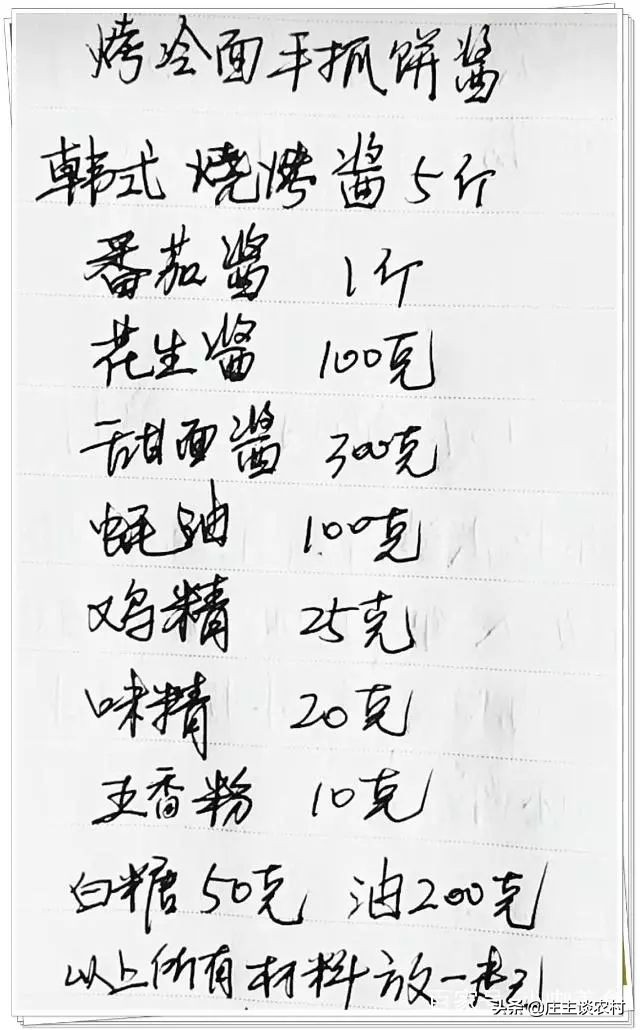 烤冷面手抓饼酱
韩式烧烤酱5斤
番茄酱 1斤
花生酱 100克
甜面酱 300克
蚝油 100克
鸡精 25克
味精 20克
五香粉 10克
白糖50克 油200克
以上所有材料放一起
头条@庄主谈农村